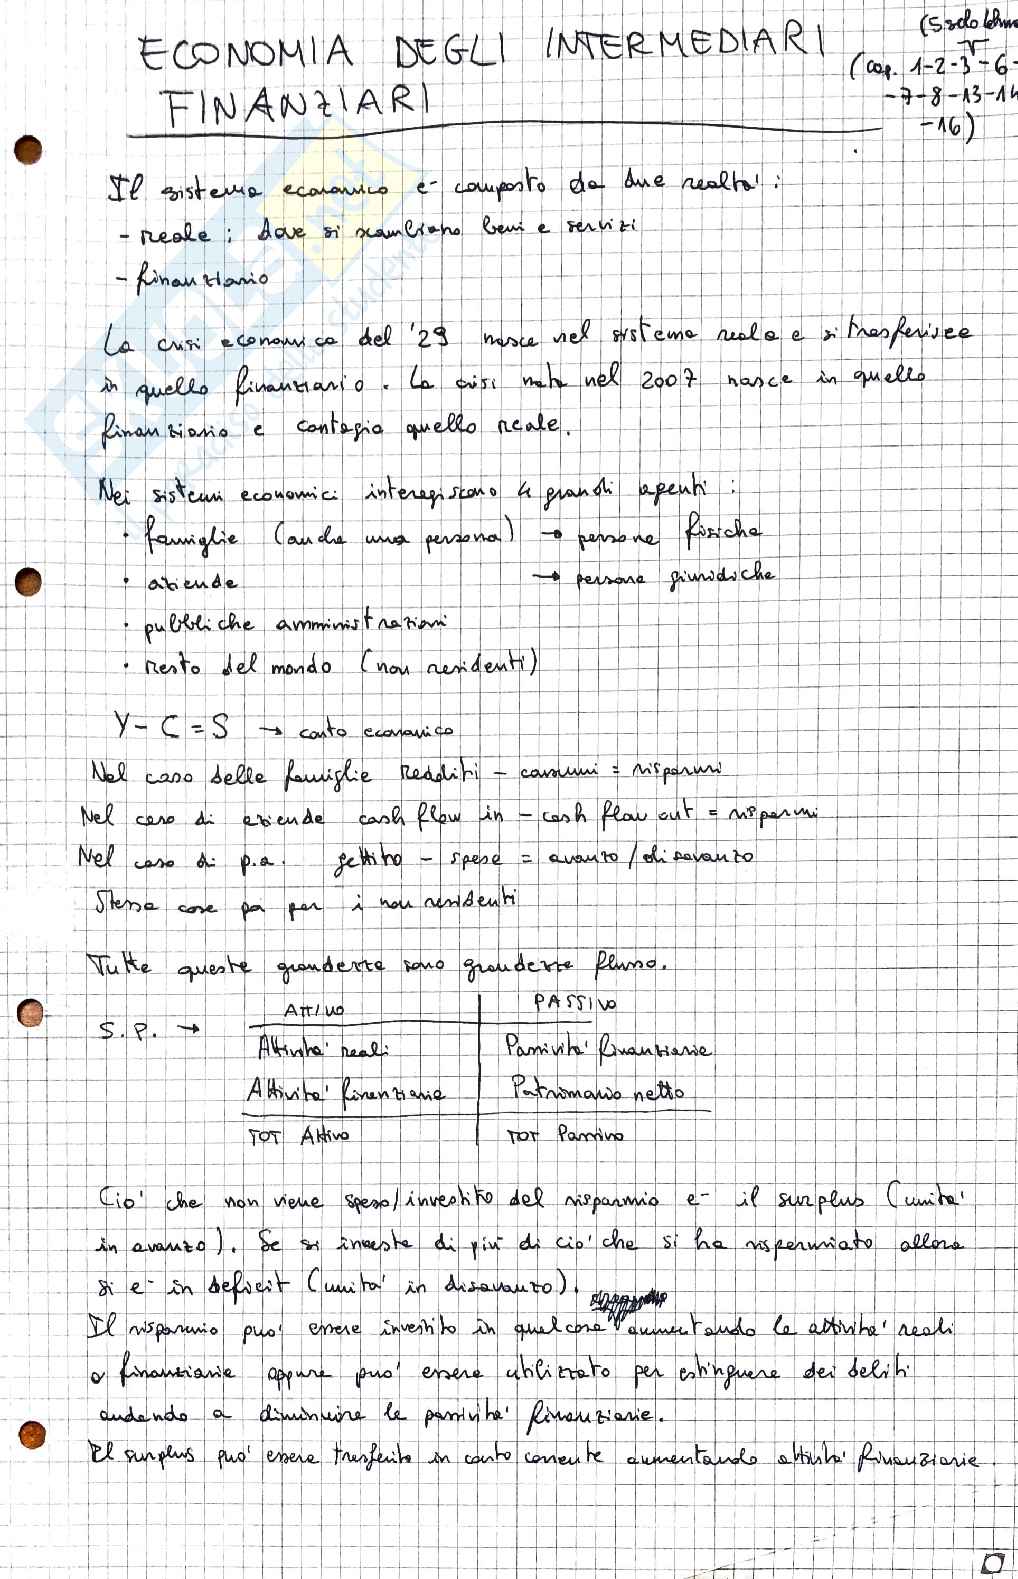 ECONOMIA DEGLI INTERMEDIARI
FINANZIARI
(cap. 1-2-3-6-
-7-8-13-14
-16)
Il sistema economico e' composto da due realta':
- reale: dove si scambiano beni e servizi
- finanziario
La crisi economica del '29 nasce nel sistema reale e si trasferisce
in quello finanziario. La crisi nata nel 2007 nasce in quello
finanziario e contagia quello reale.
Nei sistemi economici interagiscono 4 grandi agenti:
• famiglie (anche una persona) → persone fisiche
• aziende → persone giuridiche
• pubbliche amministrazioni
• resto del mondo (non residenti)
Y - C = S → conto economico
Nel caso delle famiglie Redditi - consumi = risparmi
Nel caso di aziende cash flow in - cash flow out = risparmi
Nel caso di p.a. gettito - spese = avanzo/disavanzo
Stessa cosa per i non residenti
Tutte queste grandezze sono grandezze flusso.
S.P. →
ATTIVO PASSIVO
Attivita' reali Passivita' finanziarie
Attivita' finanziarie Patrimonio netto
TOT Attivo TOT Passivo
Cio' che non viene speso/investito del risparmio e' il surplus (unita'
in avanzo). Se si investe di piu' di cio' che si ha risparmiato allora
si e' in deficit (unita' in disavanzo).
Il risparmio puo' essere investito in qualcosa aumentando le attivita' reali
o finanziarie oppure puo' essere utilizzato per estinguere dei debiti
andando a diminuire le passivita' finanziarie.
Il surplus puo' essere trasferito in conto corrente aumentando attivita' finanziarie.